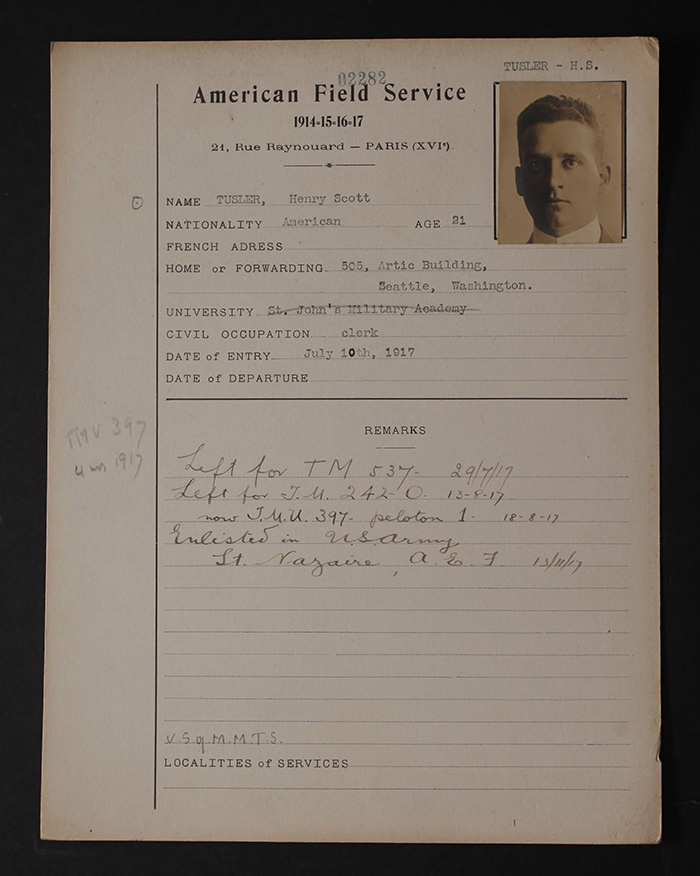 TUSLER - H.S.
02282
American Field Service
1914-15-16-17
21, Rue Raynouard — PARIS (XVIe)
NAME TUSLER, Henry Scott
NATIONALITY American AGE 21
FRENCH ADRESS
HOME or FORWARDING 505, Artic Building,
Seattle, Washington.
UNIVERSITY St. John's Military Academy
CIVIL OCCUPATION clerk
DATE of ENTRY July 10th, 1917
DATE of DEPARTURE
REMARKS
397
1917
Left for TM 537- 29/7/17
Left for T.M. 242 O. 13-8-17
now T.M.U. 397- peloton 1- 18-8-17
Enlisted in U.S. Army
St. Nazaire, A.E.F 13/11/17
V.S.q M.M.T.S.
LOCALITIES of SERVICES